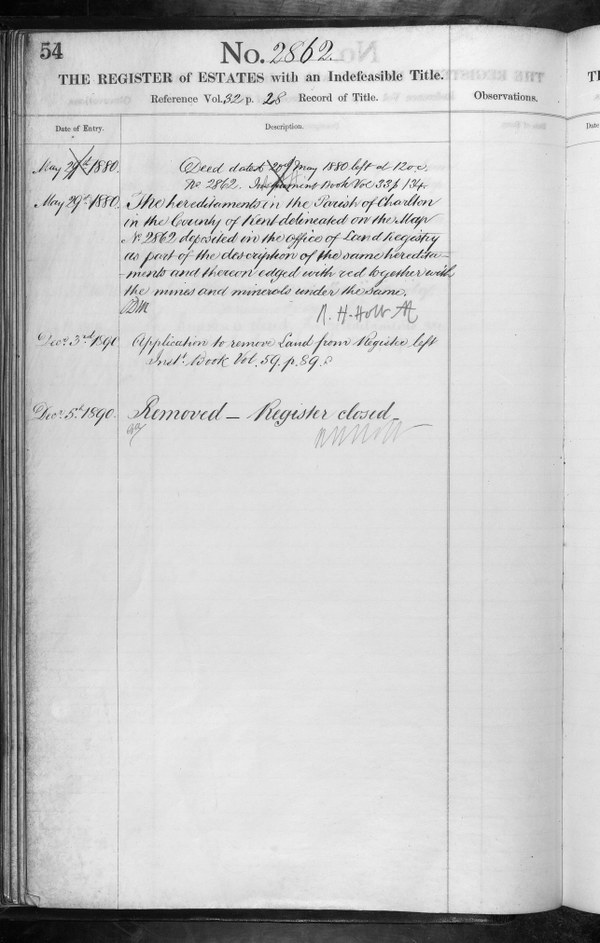 54
No. 2862.
THE REGISTER of ESTATES with an Indefeasible Title.
Reference Vol. 32 p. 28 Record of Title.
Observations.
Date of Entry.
Description.
May 29th 1880.
Deed dated May 1880 left at 12 o.c.
No 2862. Instrument Book Vol 33 p 134.
May 29th 1880.
The hereditaments in the Parish of Charlton
in the County of Kent delineated on the Map
No 2862 deposited in the office of Land Registry
as part of the description of the same heredita-
-ments and thereon edged with red together with
the mines and minerals under the same.
R. H. Holt
Decr 3rd 1890
Application to remove Land from Register left
Inst. Book Vol. 59. p. 89.
Decr 5th 1890.
Removed — Register closed —